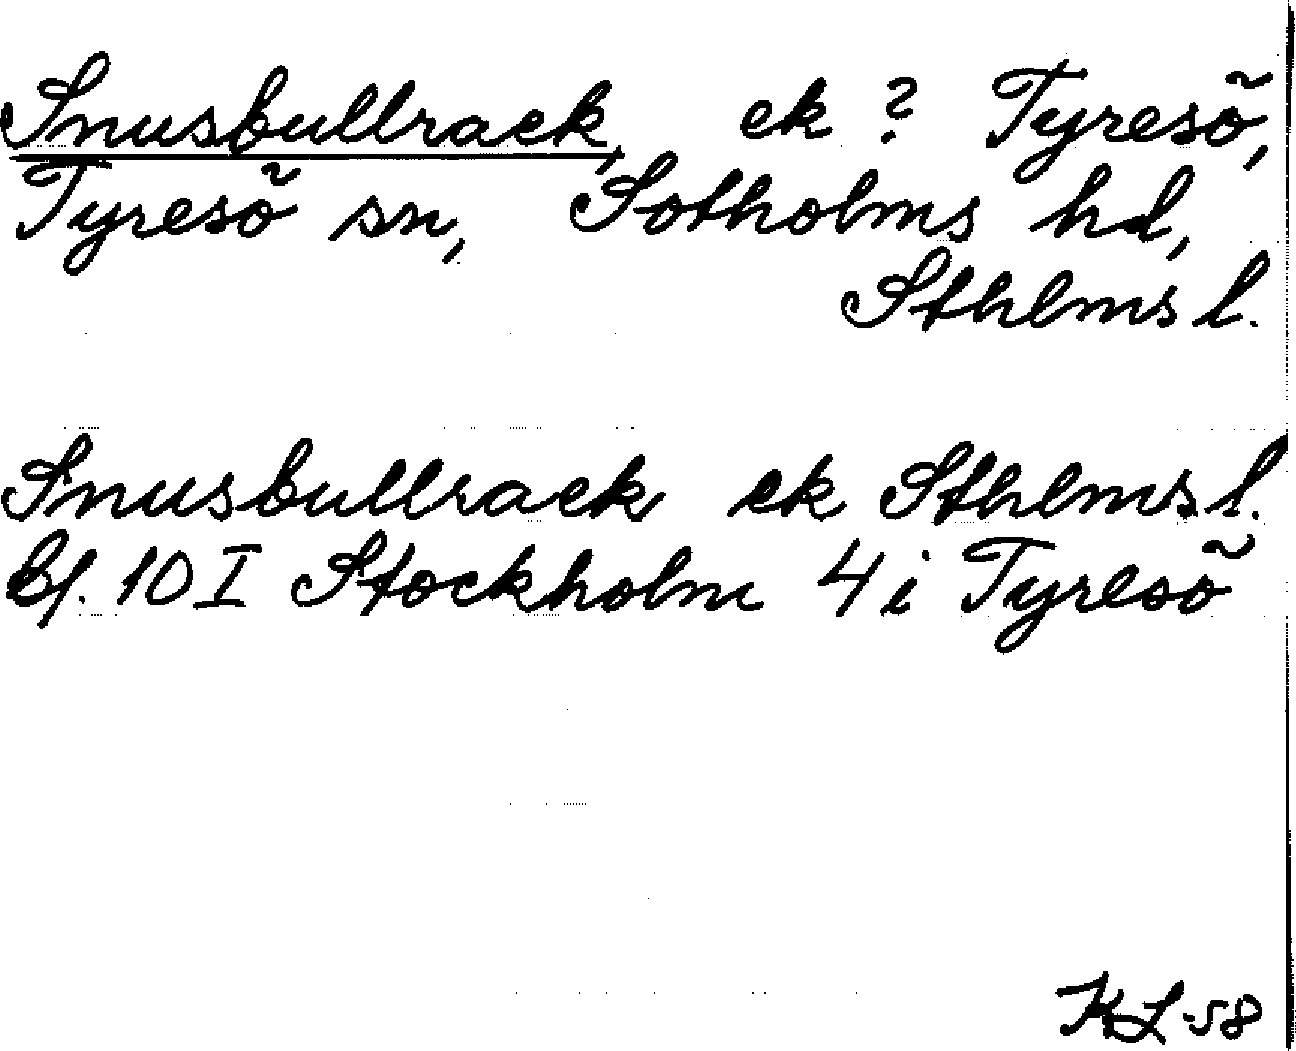 Snusbullrack, ek? Tyresö,
Tyresö sn, Sotholms hd,
Sthlms l.
Snusbullrack ek Sthlms l.
Bl. 10 I Stockholm 4 i Tyresö
KL-58